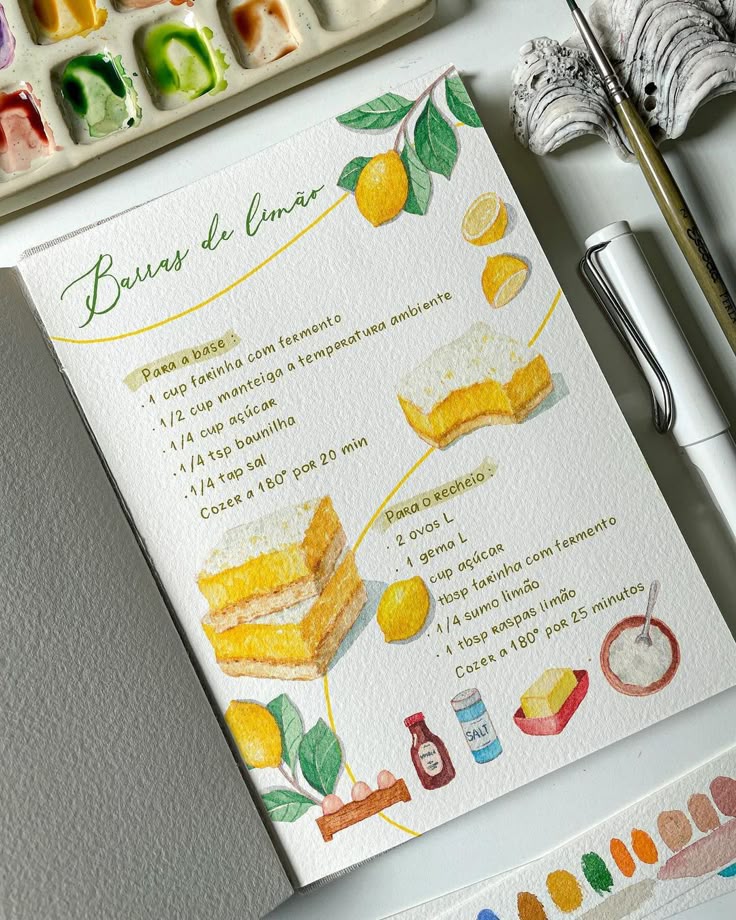 Barras de limão
Para a base:
· 1 cup farinha com fermento
· 1/2 cup manteiga a temperatura ambiente
· 1/4 cup açúcar
· 1/4 tsp baunilha
· 1/4 tap sal
Cozer a 180° por 20 min
Para o recheio:
· 2 ovos L
· 1 gema L
cup açúcar
tbsp farinha com fermento
· 1/4 sumo limão
· 1 tbsp raspas limão
Cozer a 180° por 25 minutos
SALT